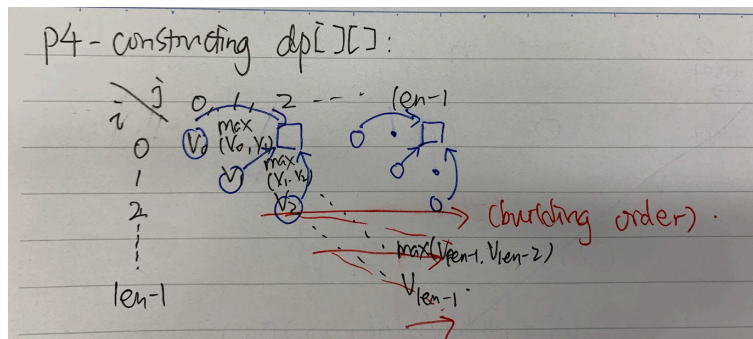 p4-constructing dp[][]:
j
i
0, 1, 2 --- len-1
0 V0 max (V0, V1)
1 V1 max (V1, V2)
2 V2 (building order).
max(Vlen-1, Vlen-2)
len-1 Vlen-1.